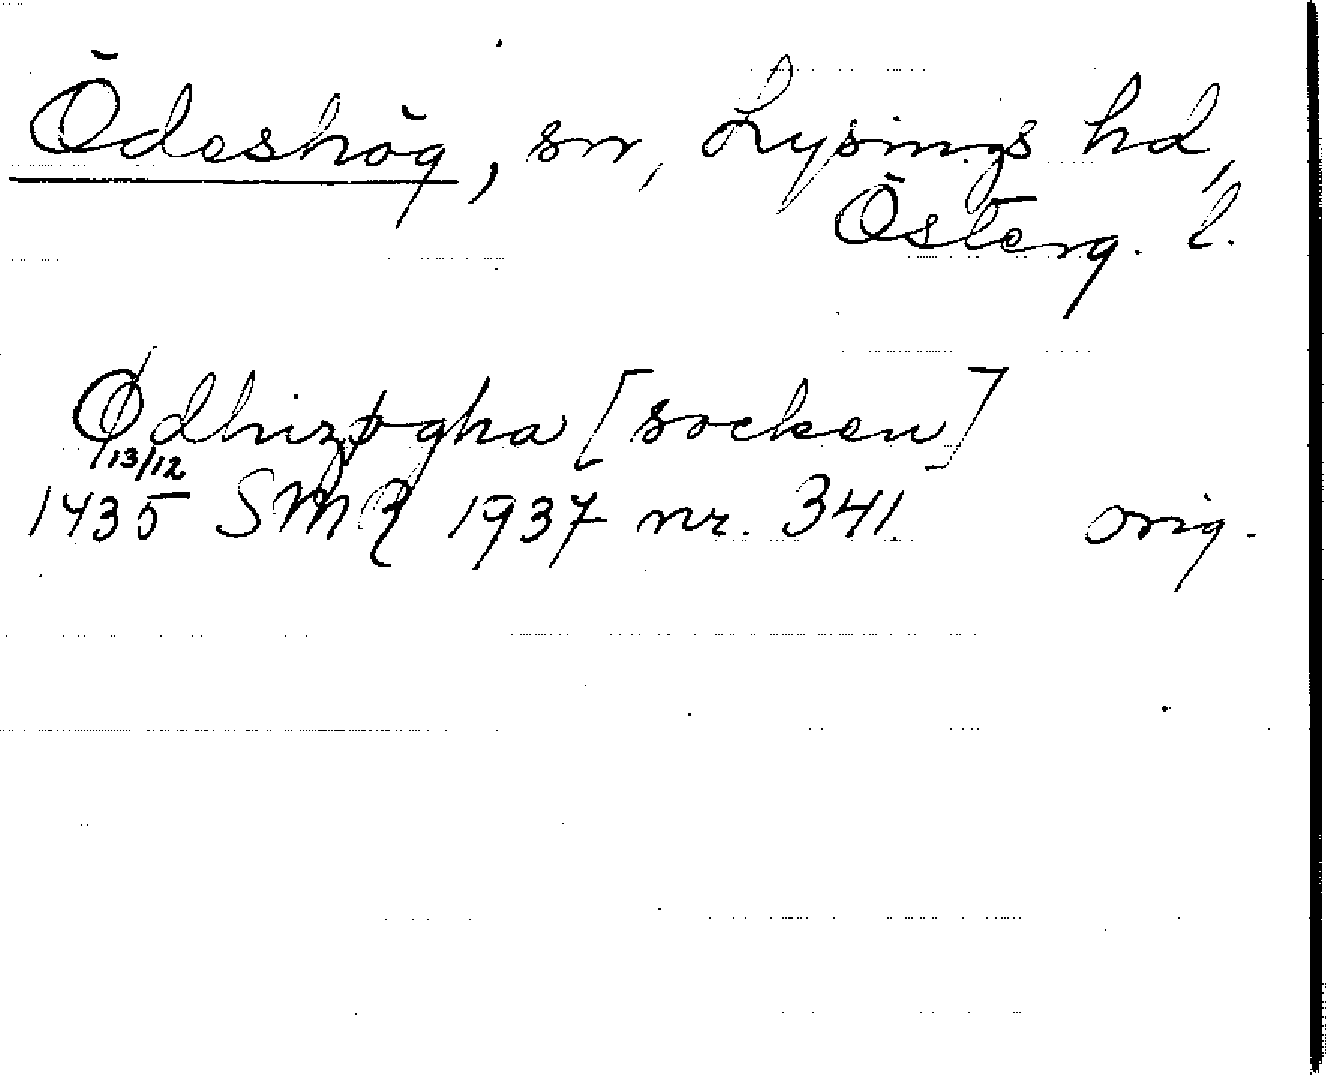 Ödeshög, sn, Lysings hd,
Österg. l.
Ødhizøgha [socken]
13/12
1435 SMR 1937 nr. 341. orig.